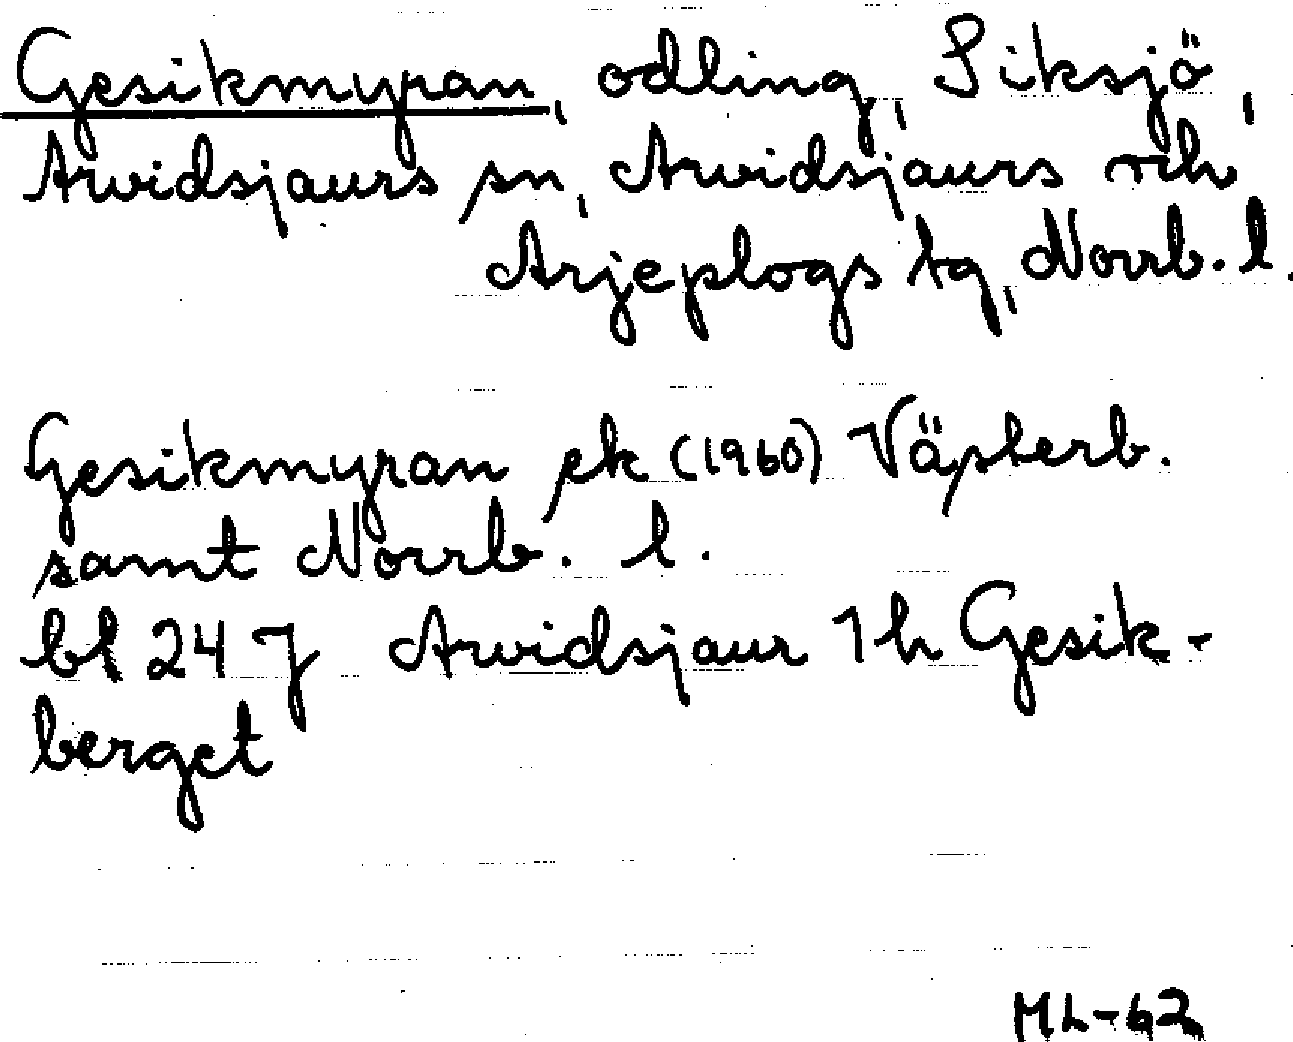 Gesikmyran, odling, Siksjö,
Arvidsjaurs sn, Arvidsjaurs och
Arjeplogs tg, Norrb. l.
Gesikmyran ek (1960) Västerb.
samt Norrb. l.
bl 24 J Arvidsjaur 1 h Gesik-
berget
ML-62